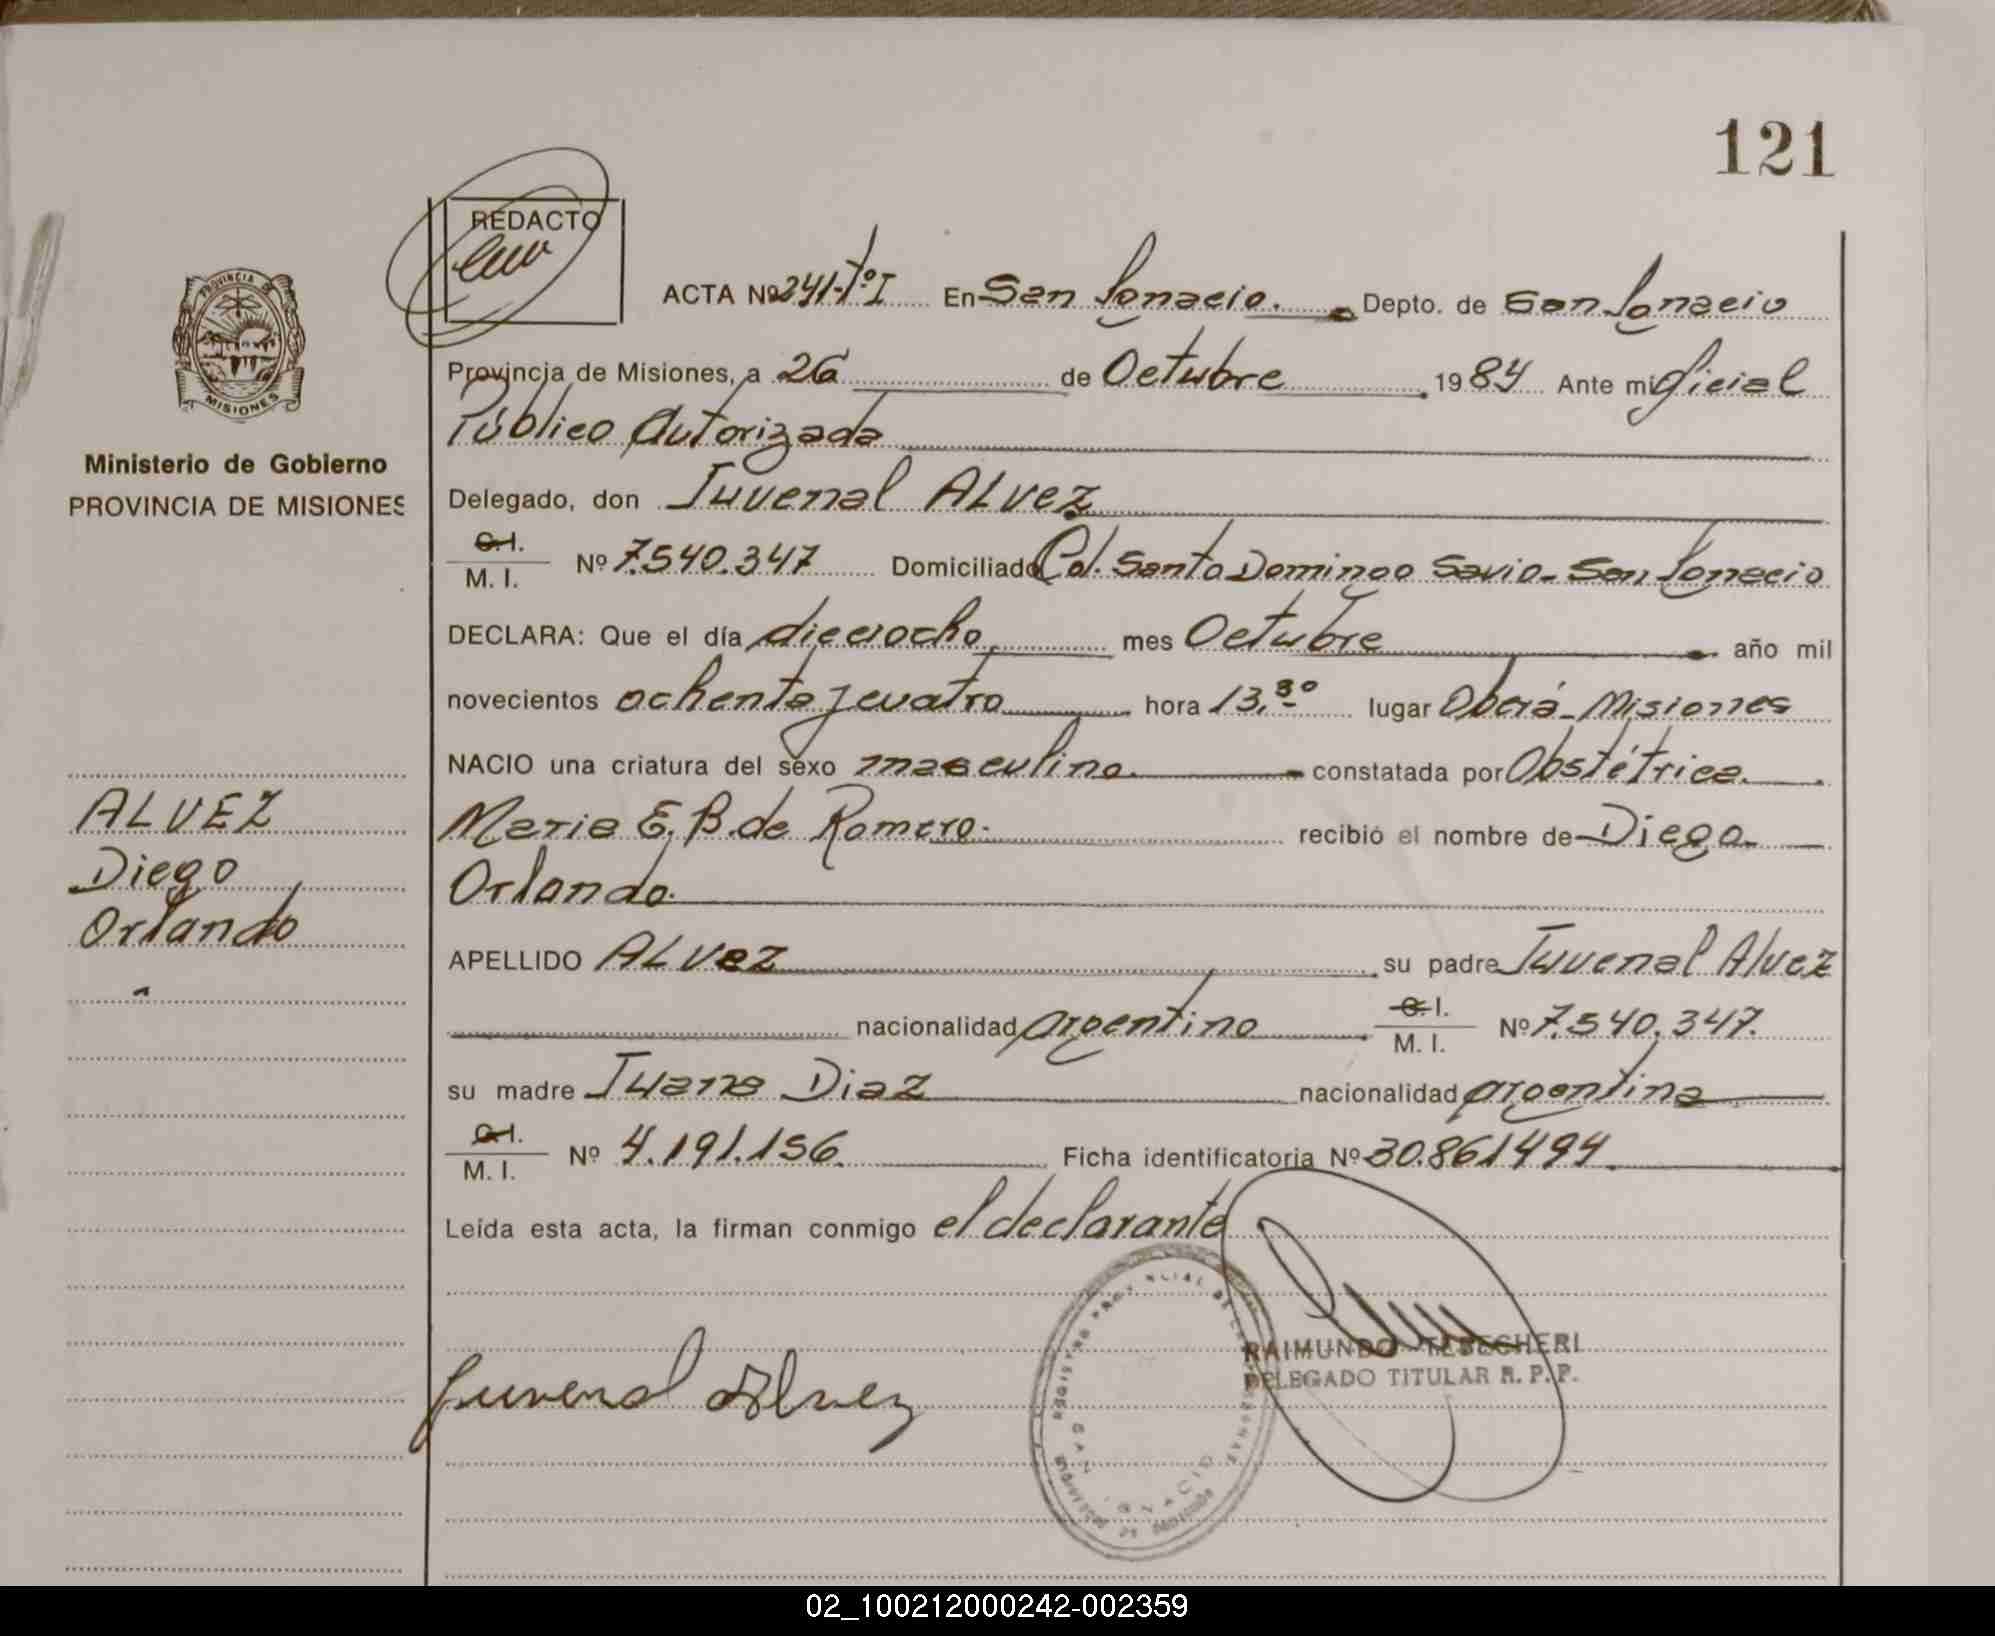 121
REDACTO
ACTA Nº 241-Tº I En San Ignacio. Depto. de San Ignacio
Provincia de Misiones, a 26 de Octubre 1984 Ante mi Oficial
Público Autorizada
Delegado, don Juvenal ALVEZ
C.I. M.I. Nº 7.540.347 Domiciliado Col. Santo Domingo Savio - San Ignacio
DECLARA: Que el día dieciocho mes Octubre año mil
novecientos ochenta y cuatro hora 13,30 lugar Oberá - Misiones
NACIO una criatura del sexo masculino. constatada por Obstétrica.
Maria E. B. de Romero. recibió el nombre de Diego
Orlando.
APELLIDO ALVEZ su padre Juvenal Alvez
nacionalidad argentino C.I. M.I. Nº 7.540.347.
su madre Juana Diaz nacionalidad argentina
C.I. M.I. Nº 4.191.156. Ficha identificatoria Nº 30.861494
Leída esta acta, la firman conmigo el declarante
Juvenal Alvez
RAIMUNDO TEBECHERI
DELEGADO TITULAR R. P. P.
REGISTRO PROVINCIAL DE LAS PERSONAS
SAN IGNACIO
PROVINCIA DE
MISIONES
Ministerio de Gobierno
PROVINCIA DE MISIONES
ALVEZ
Diego
Orlando
02_100212000242-002359